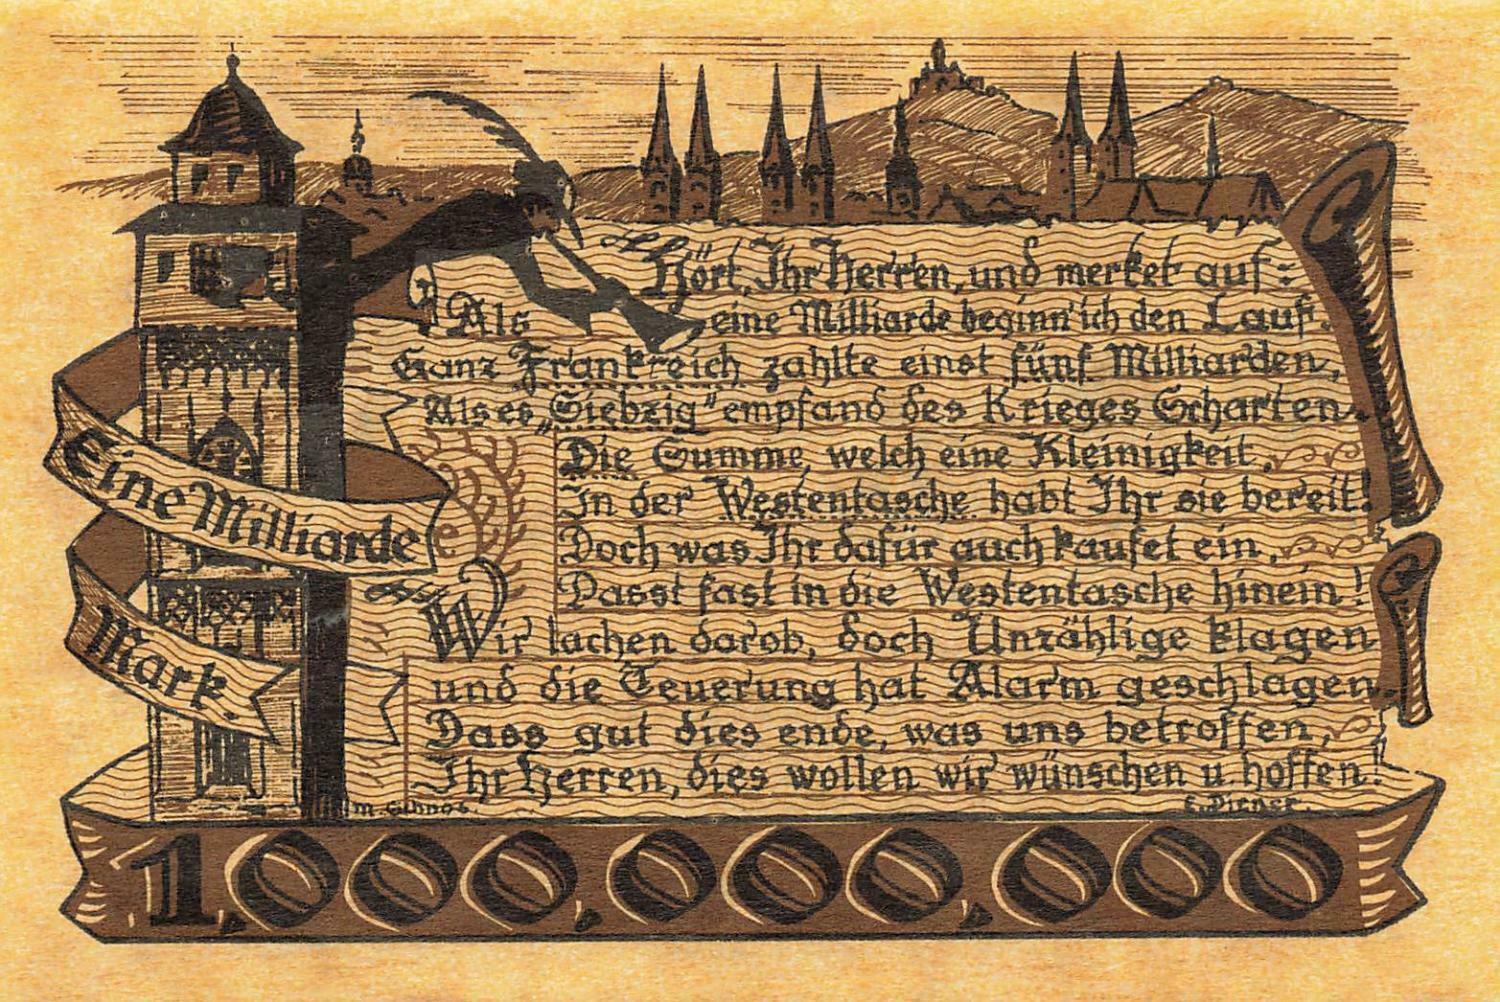 Hört, Ihr Herren, und merket auf:
Als eine Milliarde beginn' ich den Lauf.
Ganz Frankreich zahlte einst fünf Milliarden,
Als es „Siebzig" empfand des Krieges Scharten.
Die Summe, welch eine Kleinigkeit,
In der Westentasche habt Ihr sie bereit!
Doch was Ihr dafür auch kaufet ein,
Passt fast in die Westentasche hinein!
Wir lachen darob, doch Unzählige klagen
und die Teuerung hat Alarm geschlagen.
Dass gut dies ende, was uns betroffen,
Ihr Herren, dies wollen wir wünschen u. hoffen!
Eine Milliarde
Mark.
1,000,000,000